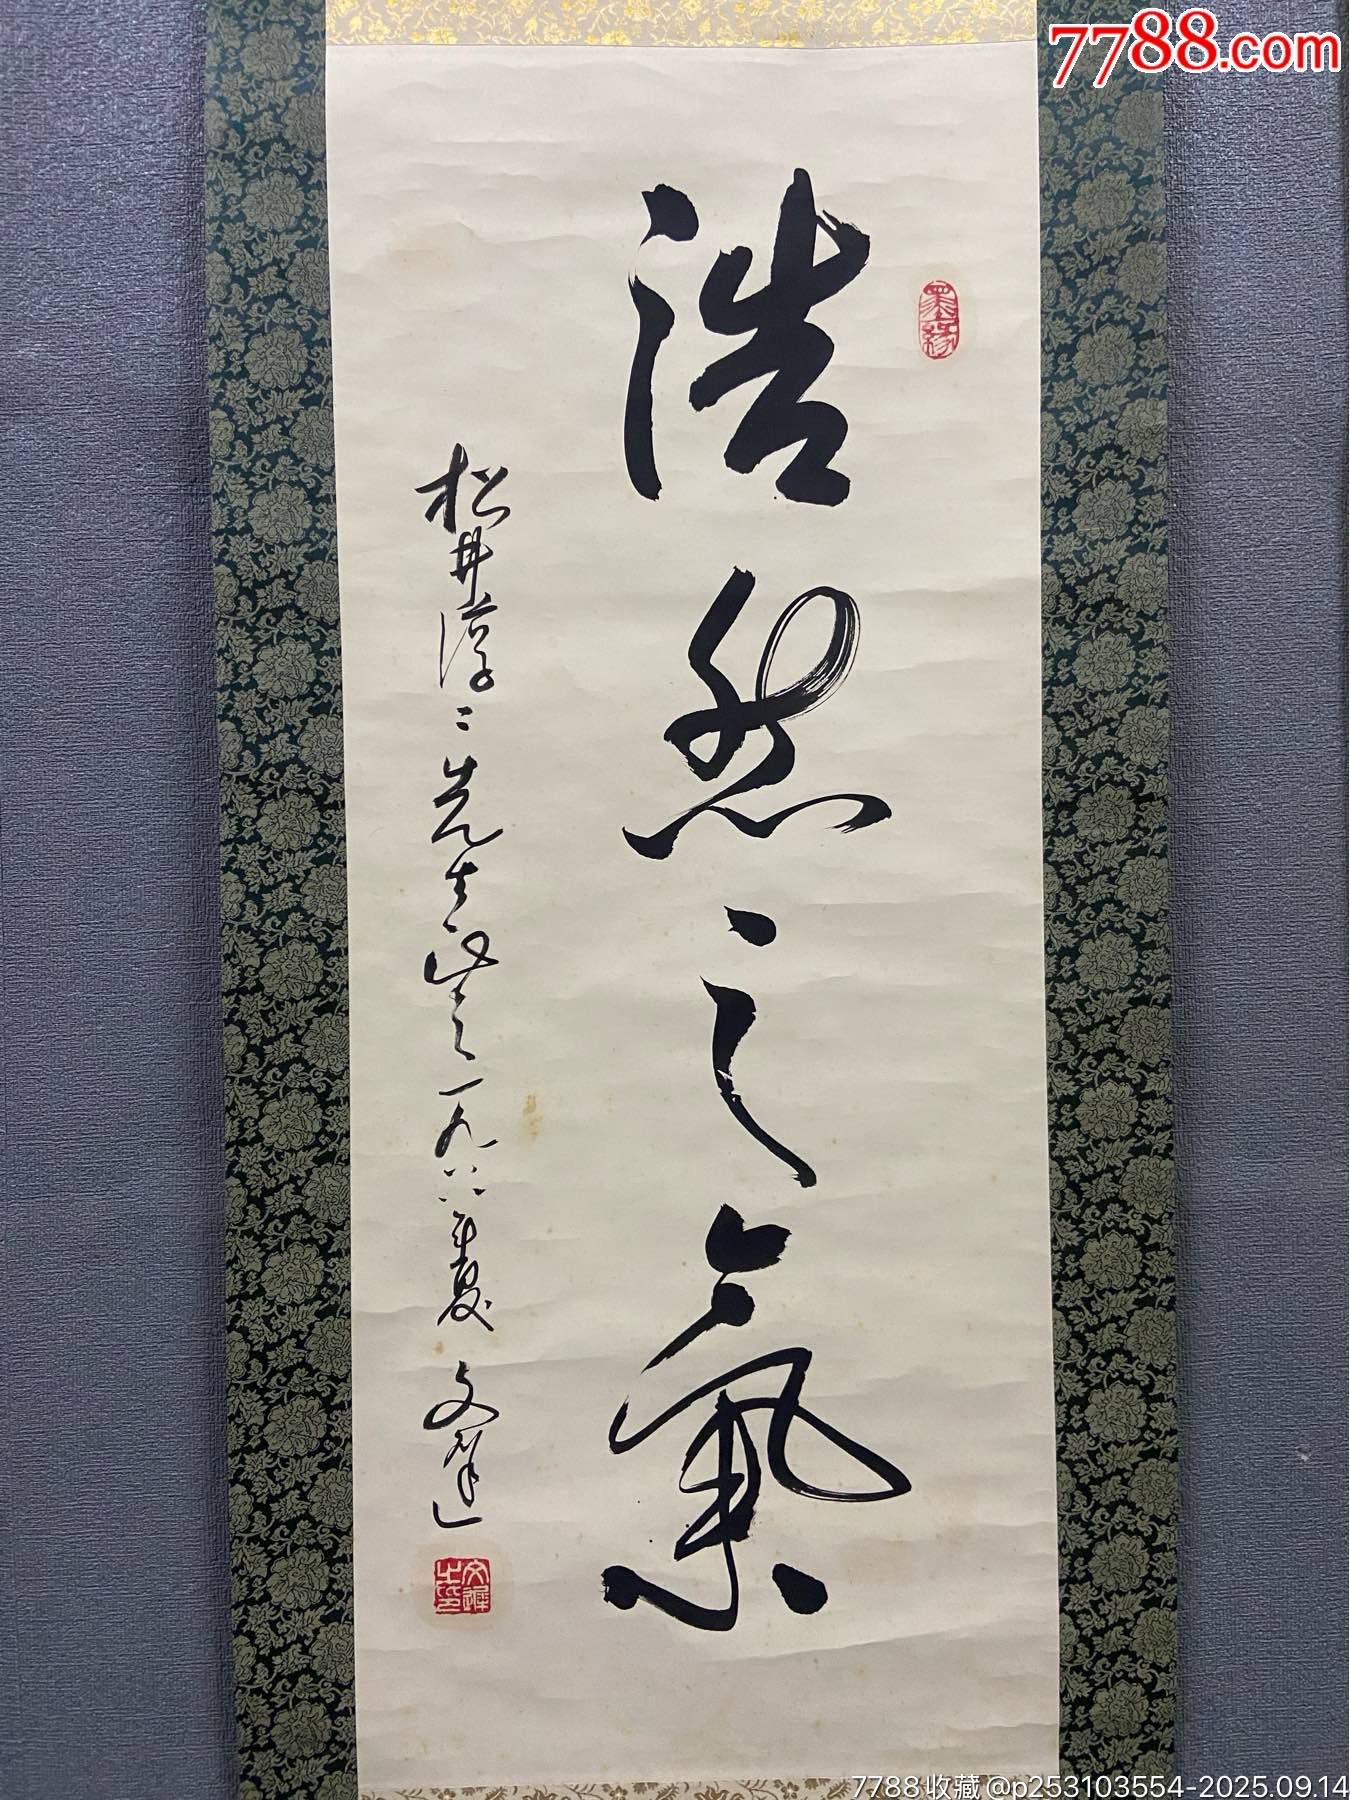 7788.com
墨緣
浩然之氣
松井淳二先生之一九八八年夏 文遲
文遲之印
7788收藏@p253103554-2025.09.14